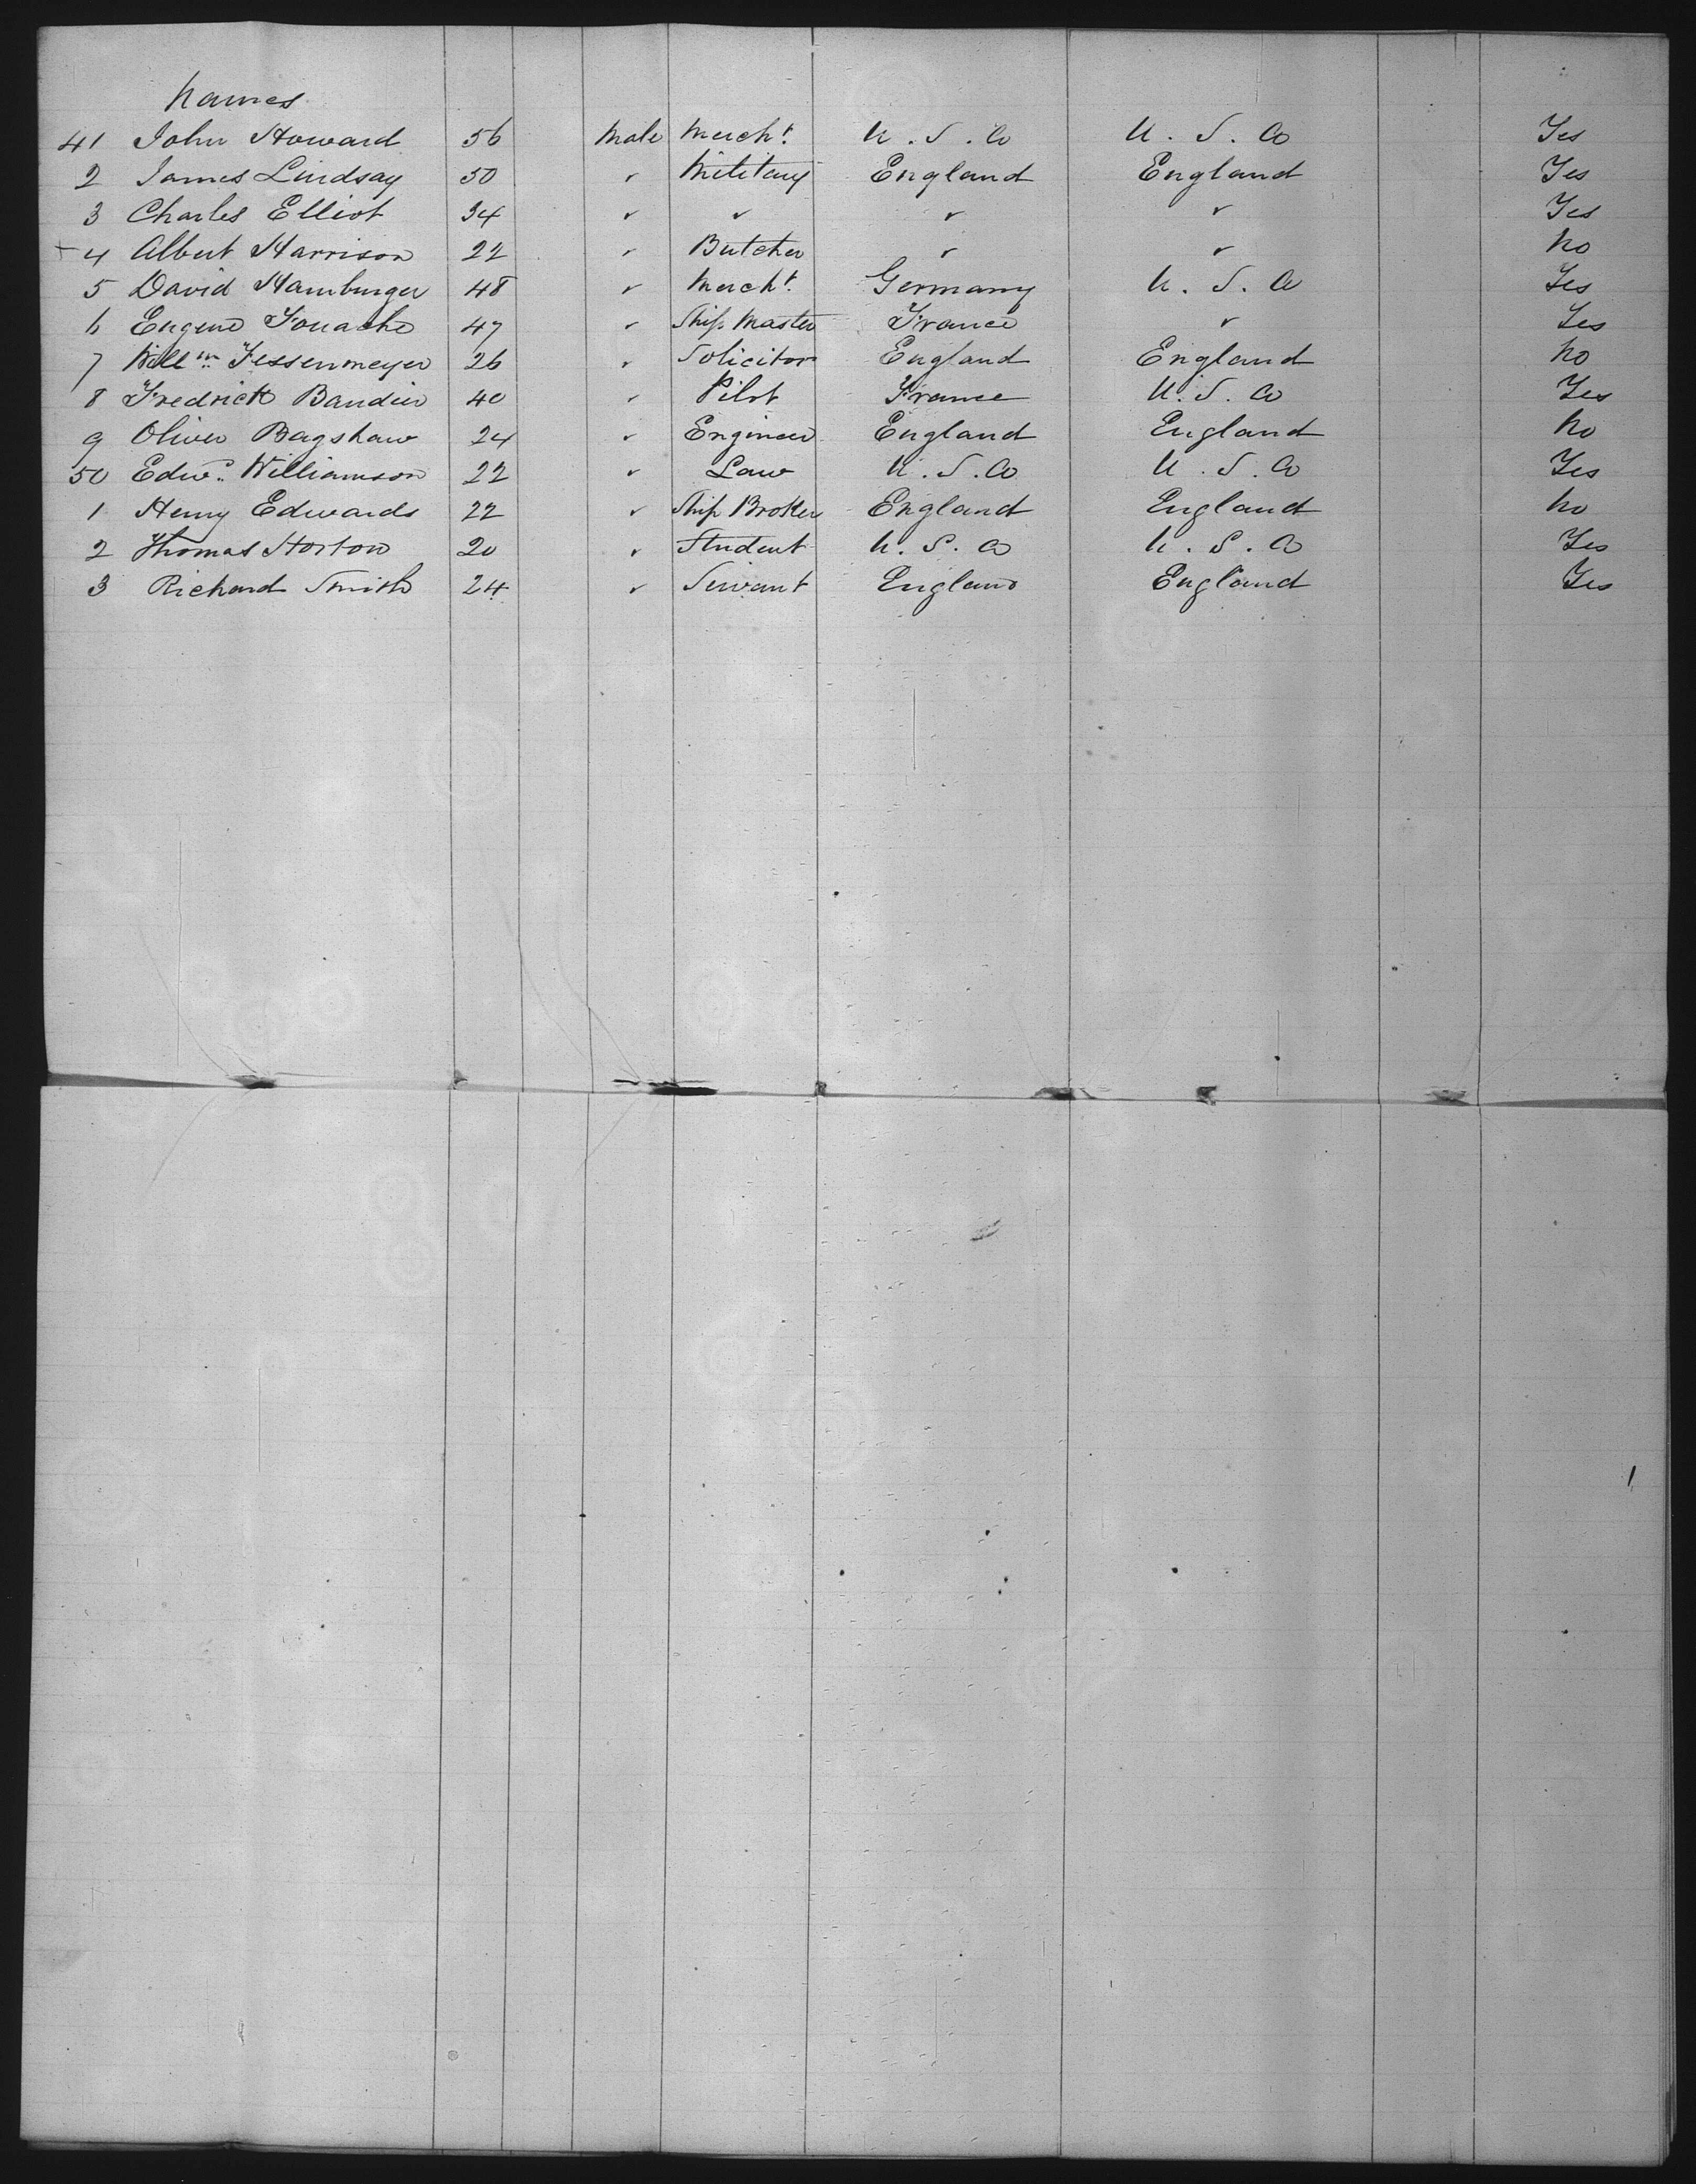 Names
41 John Howard 56 Male Merch.t U.S.A U.S.A Yes
2 James Lindsay 50 " Military England England Yes
3 Charles Elliot 34 " " " " Yes
+ 4 Albert Harrison 22 " Butcher " " No
5 David Hamburger 48 " Merch.t Germany U.S.A Yes
6 Eugene Fouache 47 " Ship Master France " Yes
7 Will.m Fessenmeyer 26 " Solicitor England England No
8 Fredrick Baudier 40 " Pilot France U.S.A Yes
9 Oliver Bagshaw 24 " Engineer England England No
50 Edw.d Williamson 22 " Law U.S.A U.S.A Yes
1 Henry Edwards 22 " Ship Broker England England No
2 Thomas Horton 20 " Student U.S.A U.S.A Yes
3 Richard Smith 24 " Servant England England Yes